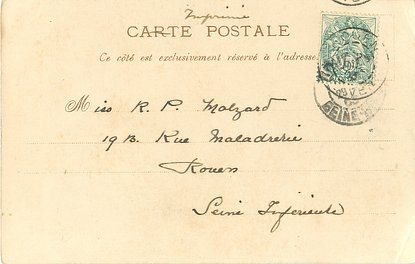 Imprimé
CARTE POSTALE
Ce côté est exclusivement réservé à l'adresse.
Miss R. P. Malzard
19 B. Rue Maladrerie
Rouen
Seine Inférieure
SEINE